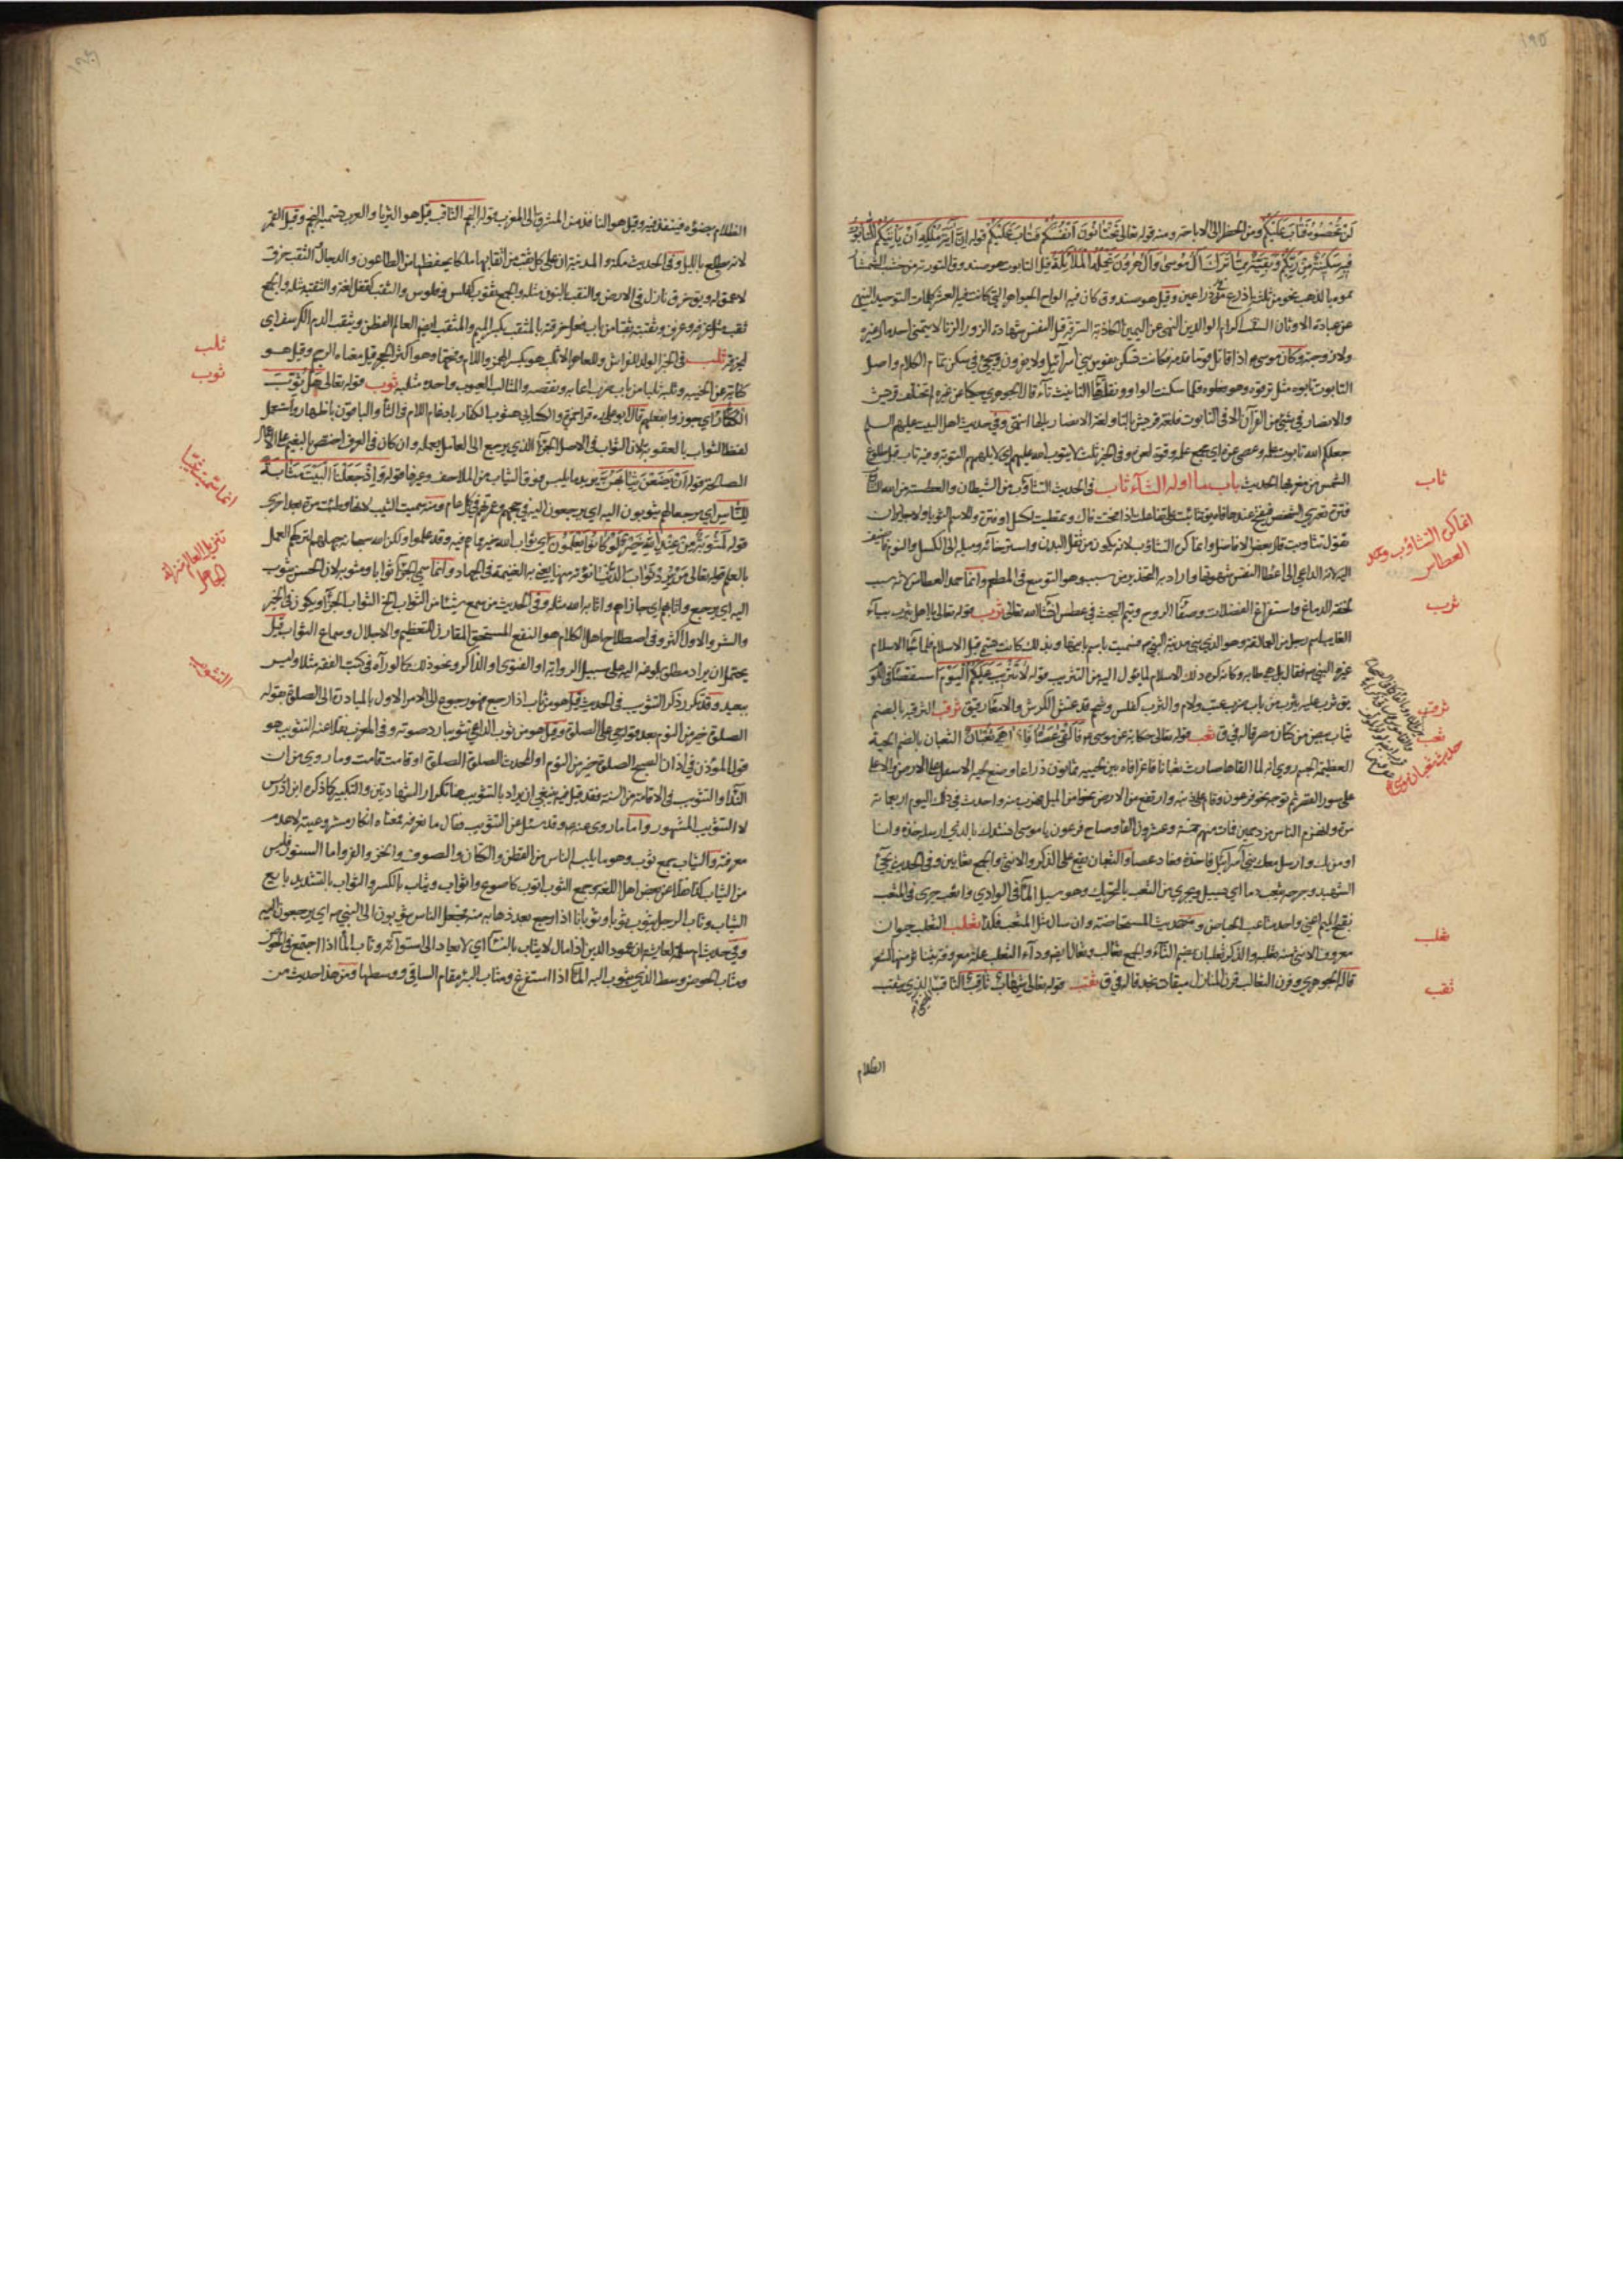 ١٩٥
لن تحصوه فتاب عليكم ومن الحظر الى الاباحة ومنه قوله تعالى تختانون انفسكم فتاب عليكم قوله ان آية ملكه ان يأتيكم التابوت
فيه سكينة من ربكم وبقية مما ترك آل موسى وآل هرون تحمله الملائكة قيل التابوت هو صندوق التورية من خشب الشمشاد
مموه بالذهب نحو من ثلثة اذرع في ذراعين وقيل هو صندوق كان فيه الواح الجواهر التي كانت فيه العشر كلمات التوحيد النهي
عن عبادة الاوثان السبت اكرام الوالدين النهي عن اليمين الكاذبة السرقة قتل النفس شهادة الزور الزنا لا يتمنى احد مال غيره
ولا زوجته وكان موسى اذا قاتل قوما قدمه فكانت تسكن نفوس بني اسرائيل ولا يفرون ويجئ في سكن تمام الكلام واصل
التابوت تابوه مثل ترقوه وهو فعلوه فلما سكنت الواو وانقلبت هاء التانيث تاء قال الجوهري حكاية عن غيره لم تختلف قريش
والانصار في شئ من القرآن الا في التابوت فلغة قريش بالتاء ولغة الانصار بالهاء انتهى وفي حديث اهل البيت عليهم السلم
جعلكم الله تابوت علمه وعصى عزه اي مجمع علمه وقوة لعزه وفي الخبر ثلث لا يتوب الله عليهم اي لا يلهمهم التوبة وفيه تاب قبل طلوع
الشمس من مغربها الحديث باب ما اوله الثاء ثاب في الحديث التثاوب من الشيطان والعطسة من الله التثاوب
فترة تعتري الشخص فيفتح عندها فاه يق تثائبت على تفاعلت اذا فتحت فاك وتمطيت لكسل او فترة والاسم الثوباء
تقول تثاوبت قال بعض الافاضل وانما كره التثاوب لانه يكون من ثقل البدن واسترخائه وميله الى الكسل والنوم فاضيف
اليه لانه الداعي الى اعطاء النفس شهوتها واراد به التحذير من سببه وهو التوسع في المطعم وانما حمد العطاس لانه سبب
لخفة الدماغ واستفراغ الفضلات وصفاء الروح ويتم البحث في عطس انشاء الله تعالى ثرب قوله تعالى يا اهل يثرب بياء
الغايب اسم رجل من العمالقة وهو الذي بنى مدينة النبي ص فسميت باسم بانيها وبذلك كانت تسمى قبل الاسلام فلما جاء الاسلام
غيره النبي ص فقال بل هي طابه وكانه كره ذلك الاسلام لما يؤول اليه من التثريب قوله لا تثريب عليكم اليوم
يق ثرب عليه يثرب من باب ضرب عتب ولام والثرب كفلس شحم قد غشى الكرش والامعاء رقيق ثرقب الثرقبية بالضم
ثياب بيض من كتان مصر قاله في ق ثعب قوله تعالى حكاية عن موسى ع فالقى عصاه فاذا هي ثعبان الثعبان بالضم الحية
العظيمة الجسم روي انه لما القاها صارت ثعبانا فاغرا فاه بين لحييه ثمانون ذراعا وضع لحيه الاسفل على الارض والاعلى
على سور القصر ثم توجه نحو فرعون وقام على ذنبه وارتفع من الارض نحوا من الميل فهرب منه واحدث في ذلك اليوم اربعمائة
مرة وانهزم الناس مزدحمين فمات منهم خمسة وعشرون الفا وصاح فرعون يا موسى انشدك بالذي ارسلك خذه وانا
اومن بك وارسل معك بني اسرائيل فاخذه فعاد عصا والثعبان يقع على الذكر والانثى والجمع ثعابين وفي الحديث يجئ
الشهيد وجرحه يثعب دما اي يسيل ويجري من الثعب بالتحريك وهو مسيل الماء في الوادي وانثعب جرى في المثعب
بفتح الميم اعني واحد مثاعب الحياض ومنه حديث المستحاضة وان سال مثل المثعب فكذا ثعلب الثعلب حيوان
معروف الانثى منه ثعلبه والذكر ثعلبان بضم الثاء والجمع ثعالب وثعال ايضا وداء الثعلب علة معروفة يتناثر منها الشعر
قاله الجوهري وقرن الثعالب قرن المنازل ميقات نجد قاله في ق ثقب قوله تعالى شهاب ثاقب الثاقب الذي يثقب
الظلام
ثاب
انما كره التثاوب وحمد
العطاس
ثرب
ثرقب
ثعب
حديث ثعبان موسى
ثعلب
ثقب
الظلام بضوئه فينفذ فيه وقيل هو النافذ من المشرق الى المغرب قوله النجم الثاقب قيل هو الثريا والعرب تسميه النجم وقيل القمر
لانه يطلع بالليل وفي الحديث مكة والمدينة ان على كل نقب من انقابهما ملكا يحفظهما من الطاعون والدجال الثقب خرق
لا عمق له ويق خرق نازل في الارض والنقب بالنون مثله والجمع ثقوب كفلس وفلوس والثقب كقفل لغة والثقبة مثله والجمع
ثقب مثل غرفة وغرف وثقبته ثقبا من باب قتل خرقته بالمثقب بكسر الميم والمثقب ايضا العالم الفطن ويثقب الدم الكرسف اي
ثلب في الخبر الولد للفراش وللعاهر الاثلب هو بكسر الهمزة واللام وفتحها وهو اكثر الحجر قيل معناه الرجم وقيل هو
كناية عن الخيبة وثلبه ثلبا من باب ضرب اعابه ونقصه والمثالب العيوب واحده مثلبه ثوب قوله تعالى هل ثوب
الكفار اي جوزوا بفعلهم قال ابو علي قرا حمزة والكسائي هثوب الكفار بادغام اللام في الثاء والباقون باظهارها واستعمل
لفظ الثواب بالعقوبة لان الثواب في الاصل الجزاء الذي يرجع الى العامل بعمله وان كان في العرف اختص بالنعيم على الاعمال
الصالحة قوله ان يضعن ثيابهن يريد ما يلبس فوق الثياب من الملاحف وغيرها قوله واذ جعلنا البيت مثابة
للناس اي مرجعا لهم يثوبون اليه اي يرجعون اليه في حجهم وعمرتهم في كل عام ومنه سميت الثيب لانها وطئت مرة بعد اخرى
قوله لمثوبة من عند الله خير لو كانوا يعلمون اي ثواب الله خير مما هم فيه وقد علموا ولكن الله سبحانه جهلهم لتركهم العمل
بالعلم قوله تعالى من يرد ثواب الدنيا نؤته منها يعني به الغنيمة في الجهاد وانما سمي الجزاء ثوابا ومثوبه لان المحسن يثوب
اليه اي يرجع واثابهم اي جازاهم واثابه الله مثله وفي الحديث من سمع شيئا من الثواب الخ الثواب الجزاء ويكون في الخير
والشر والاول اكثر وفي اصطلاح اهل الكلام هو النفع المستحق المقارن للتعظيم والاجلال وسماع الثواب قيل
يحتمل ان يراد مطلق بلوغه اليه على سبيل الرواية او الفتوى او المذاكرة ونحو ذلك كما لو رآه في كتب الفقه مثلا وليس
ببعيد وقد تكرر ذكر التثويب في الحديث قيل هو من ثاب اذا رجع فهو رجوع الى الامر الاول بالمبادرة الى الصلوة بقوله
الصلوة خير من النوم بعد قوله حي على الصلوة وقيل هو من ثوب الداعي تثويبا ردد صوته وفي المغرب نقلا عنه التثويب هو
قول المؤذن في اذان الصبح الصلوة خير من النوم او المحدث الصلوة الصلوة او قامت قامت وما روي من ان
النداء والتثويب في الاقامة من السنة فقد قيل فيه ينبغي ان يراد بالتثويب هنا تكرار الشهادتين والتكبير كما ذكره ابن ادريس
لا التثويب المشهور واما ما روى عنه ع وقد سئل عن التثويب فقال ما نعرفه فمعناه انكار مشروعيته لا عدم
معرفته والثياب جمع ثوب وهو ما يلبسه الناس من القطن والكتان والصوف والخز والقز واما الستور فليس
من الثياب كذا نقلا عن بعض اهل اللغة وجمع الثوب اثوب كاصوع واثواب وثياب بالكسر والثواب بالتشديد بايع
الثياب وثاب الرجل يثوب ثوبا وثوبانا اذا رجع بعد ذهابه ومنه فجعل الناس يثوبون الى النبي ص اي يرجعون اليه
وفي حديث ام سلمة لعايشة ان عمود الدين اذا مال لا يثاب بالنساء اي لا يعاد الى استوائه وثاب الماء اذا اجتمع في الحوض
ومثاب الحوض وسطه الذي يثوب اليه الماء اذا استفرغ ومثاب البئر مقام الساقي ووسطها ومن هذا حديث من
ثلب
ثوب
التثويب